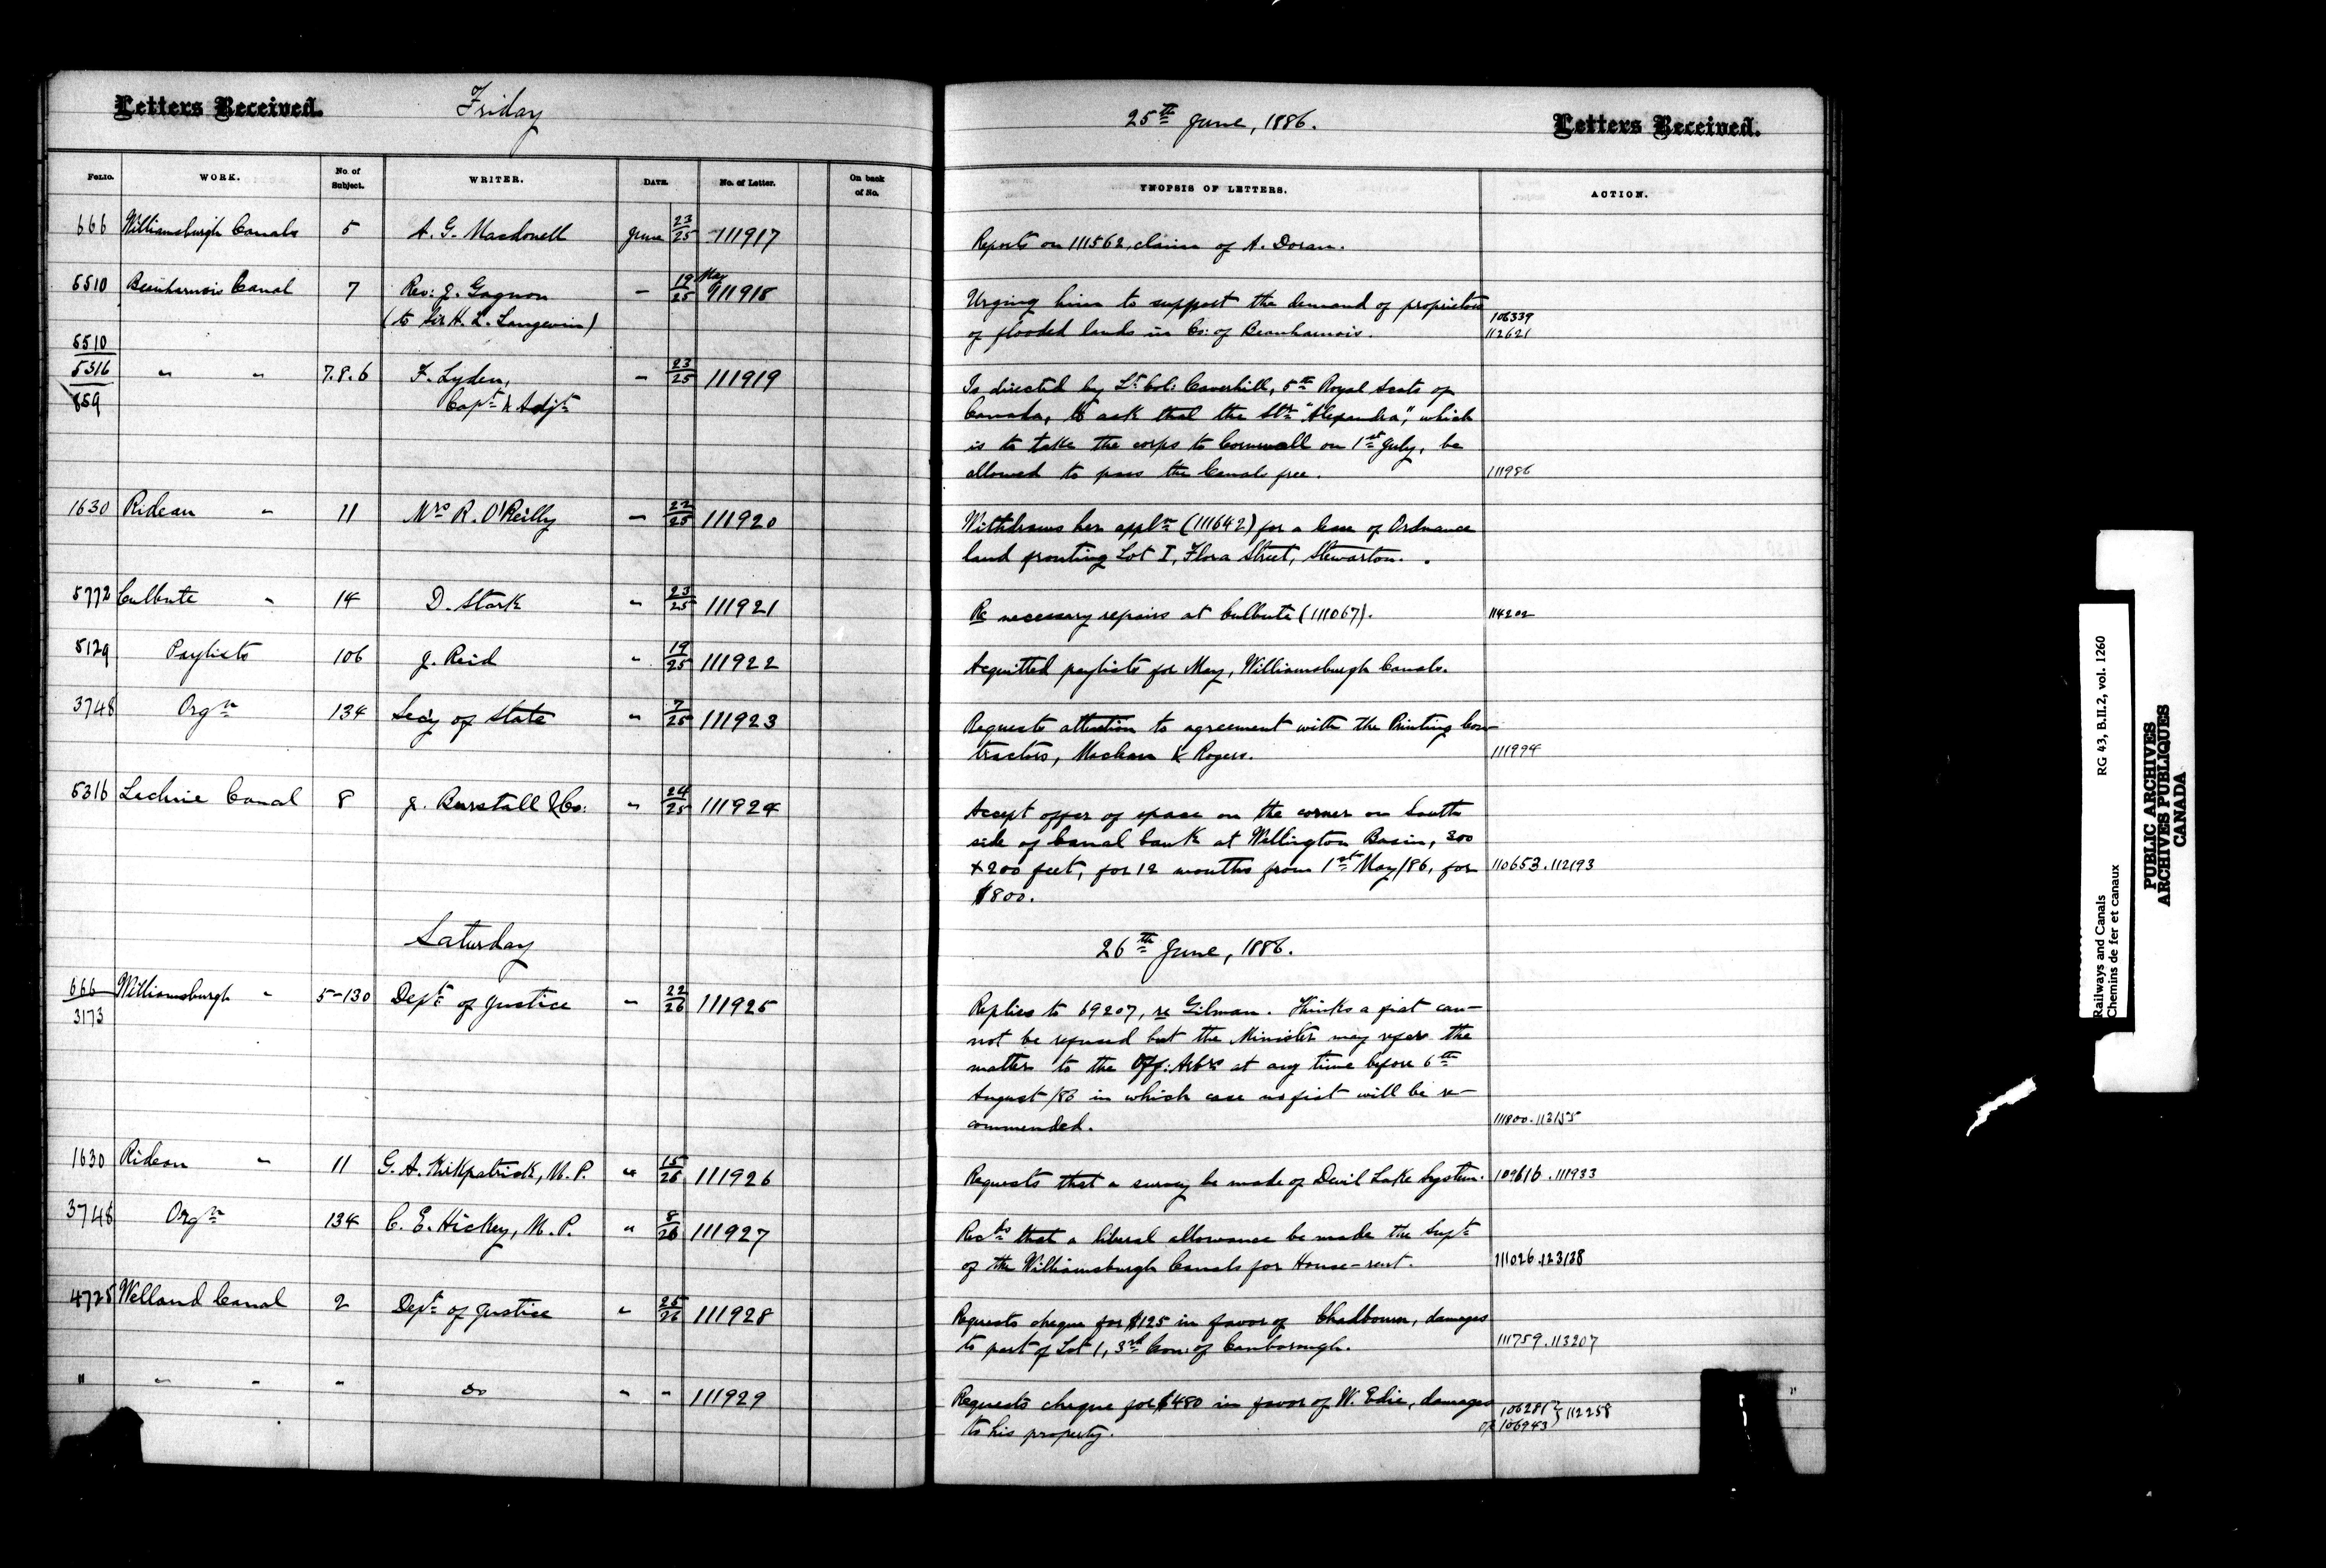 Letters Received. Friday 25th June, 1886. Letters Received.
Folio. WORK. No. of Subject. WRITER. DATE. No. of Letter. On back of No. YNOPSIS OF LETTERS. ACTION.
666 Williamsburgh Canals 5 A. G. Macdonell June 23/25 111917 Reports on 111562, claim of A. Doran.
5510 Beauharnois Canal 7 Rev: J. Gagnon - 19 May/25 111918 Urging him to support the demand of proprietors 106339
(to Sir H. L. Langevin) of flooded lands in Co: of Beauharnois. 112621
5510
5316 " " 7.8.6 F. Lyden, - 23/25 111919 Is directed by Lt. Col: Caverhill, 5th Royal Scots of
859 Capt. & Adjt. Canada, to ask that the Str. "Alexandra", which
is to take the corps to Cornwall on 1st July, be
allowed to pass the Canals free. 111986
1630 Rideau " 11 Mrs R. O'Reilly - 22/25 111920 Withdraws her appln (111642) for a lease of Ordnance
land fronting Lot I, Flora Street, Stewarton.
5772 Culbute " 14 D. Stark " 23/25 111921 Re necessary repairs at Culbute (111067). 114202
5129 Paylists 106 J. Reid " 19/25 111922 Acquitted paylists for May, Williamsburgh Canals.
3748 Orgn 134 Secy of State " 7/25 111923 Requests attention to agreement with the Printing Con-
tractors, Maclean & Rogers. 111994
5316 Lachine Canal 8 J. Burstall & Co: " 24/25 111924 Accept offer of space on the corner on South
side of Canal bank at Wellington Basin, 300
x 200 feet, for 12 months from 1st May/86, for 110653.112193
$800.
Saturday 26th June, 1886.
666 Williamsburgh " 5-130 Dept. of Justice " 22/26 111925 Replies to 69207, re Gilman. Thinks a fiat can-
3173 not be refused but the Minister may refer the
matter to the Off: Arbrs at any time before 6th
August/86 in which case no fiat will be re-
commended. 111800.113155
1630 Rideau " 11 G. A. Kirkpatrick, M.P. " 15/26 111926 Requests that a survey be made of Devil Lake System. 109616.111933
3748 Orgn 134 C. E. Hickey, M.P. " 8/26 111927 Recds that a liberal allowance be made the Supt.
of the Williamsburgh Canals for House-rent. 111026.123138
4725 Welland Canal 2 Dept. of Justice " 25/26 111928 Requests cheque for $125 in favor of Chadbourn, damages
to part of Lot 1, 3rd Con: of Canborough. 111759.113207
" " " " do " " 111929 Requests cheque for $480 in favor of W. Edie, damages 106281 } 112258
to his property. 106943
Railways and Canals RG 43, B.II.2, vol. 1260
Chemins de fer et canaux
PUBLIC ARCHIVES
ARCHIVES PUBLIQUES
CANADA